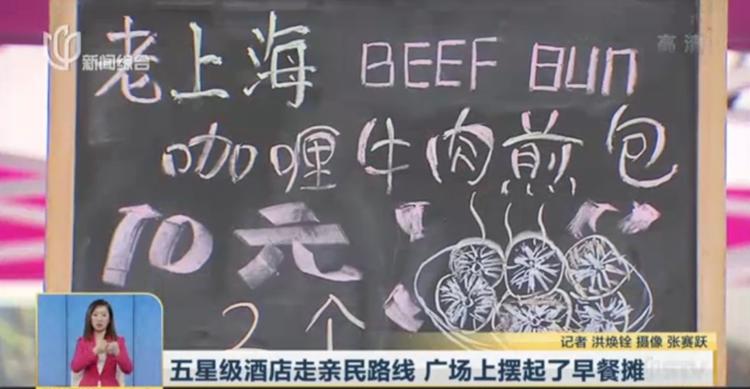 新闻综合
高清
老上海 BEEF Bun
咖喱牛肉煎包
10元
2个
记者 洪焕铨 摄像 张赛跃
五星级酒店走亲民路线 广场上摆起了早餐摊